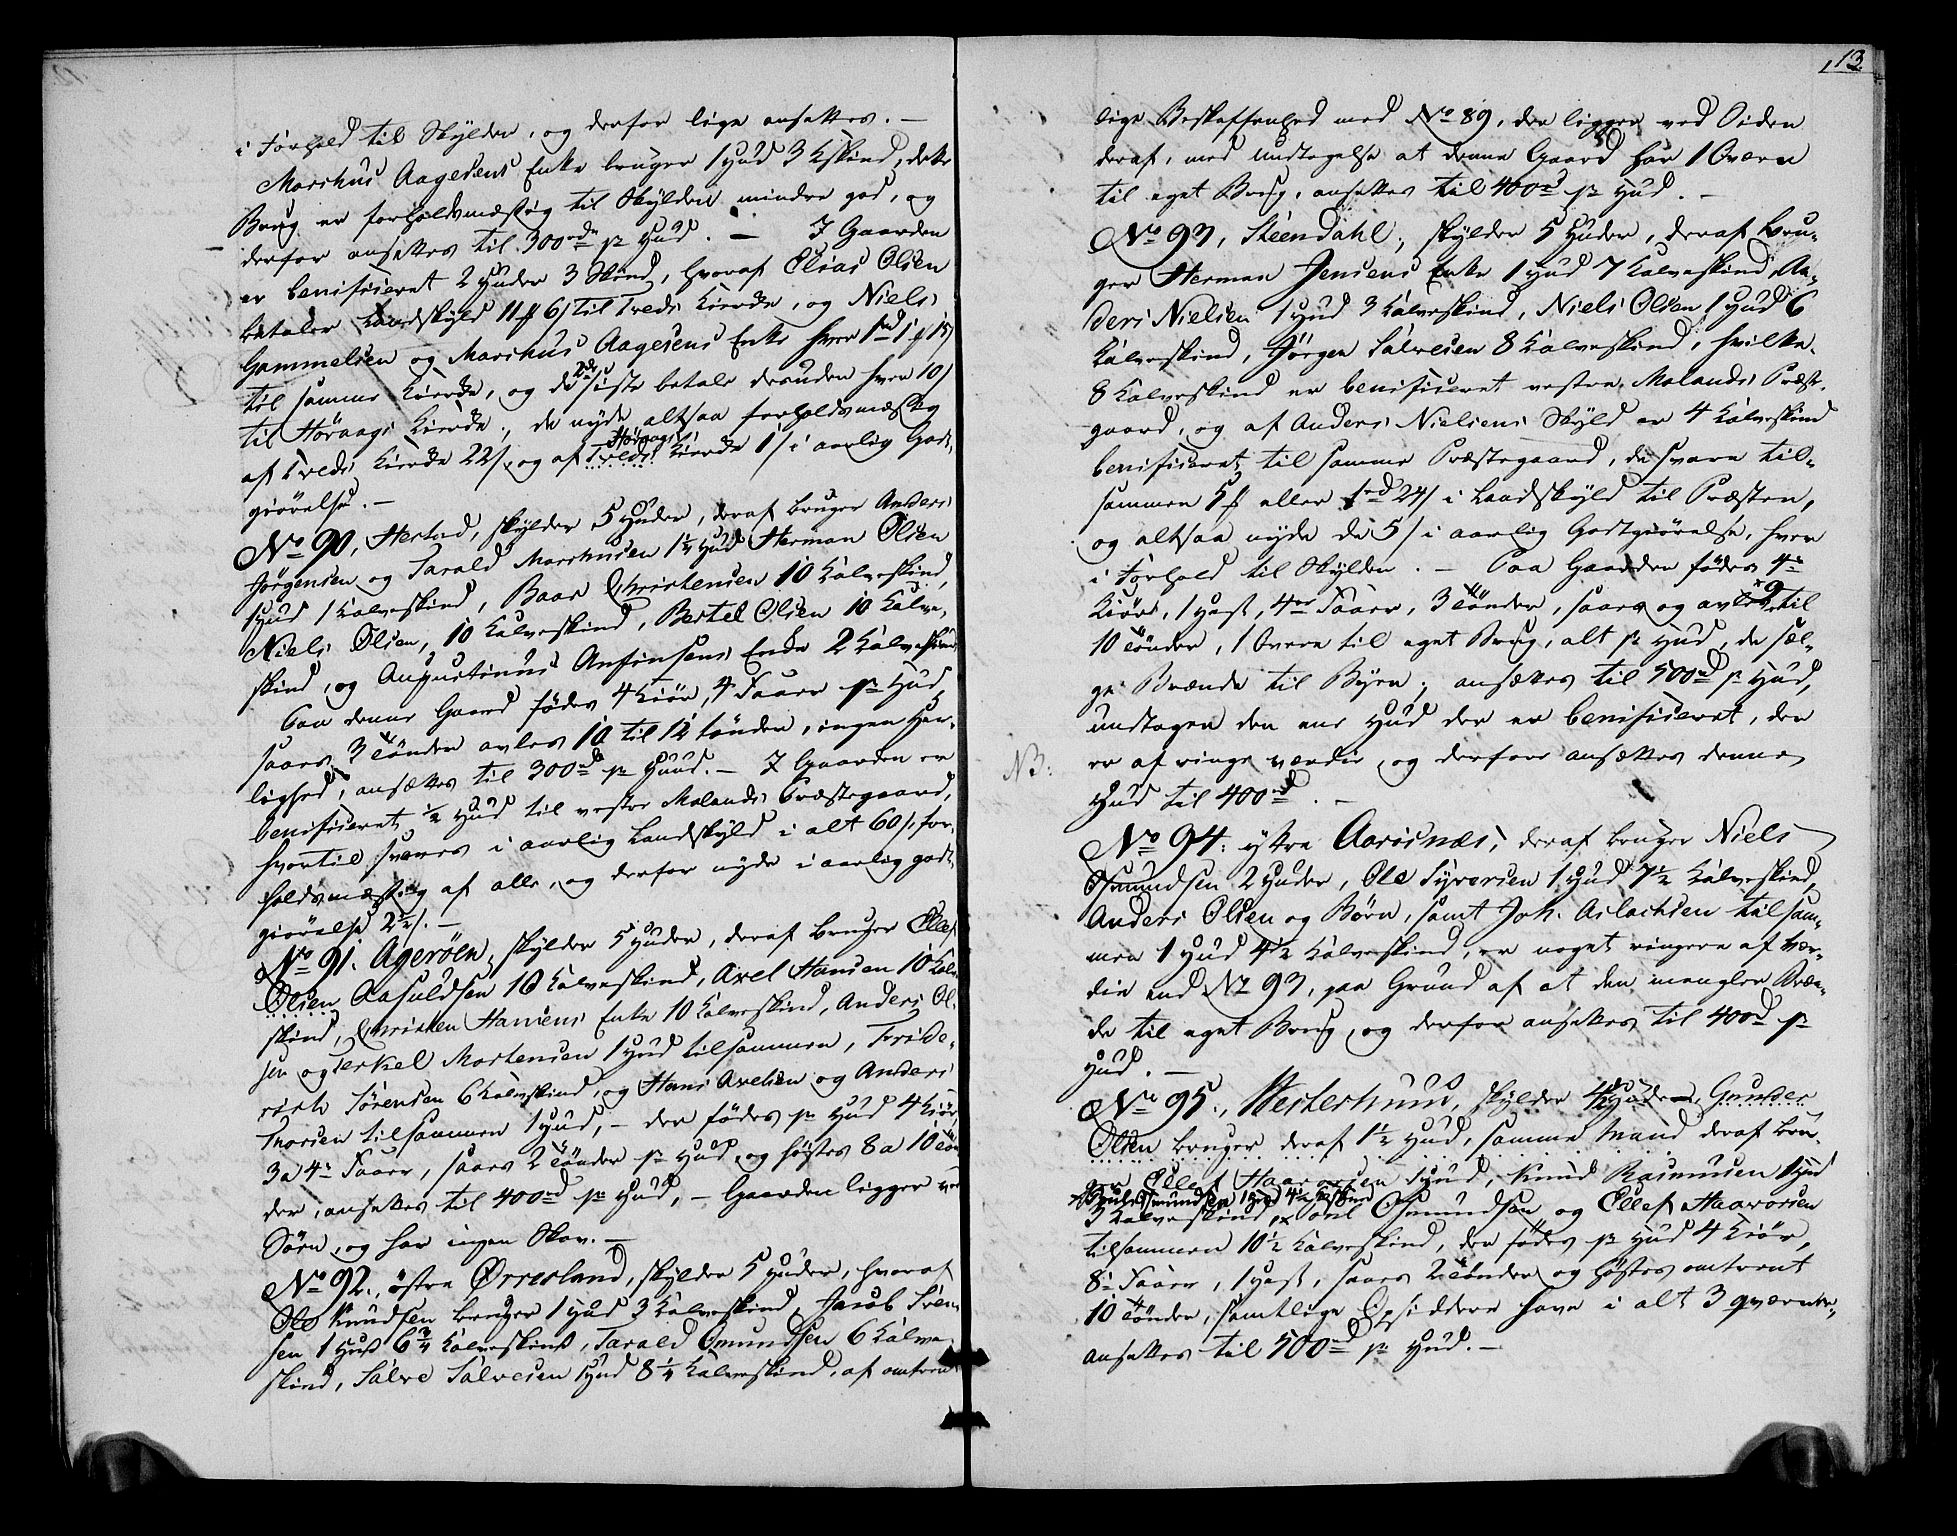 i Forhold til Skylden, og derfor lige ansættes. —
Marchus Aagesens Enke bruger 1 Hud 3 Kskind, dette
Brug er forholdsmæssig til Skylden mindre god, og
derfor ansættes til 300rd pr Hud. — I Gaarden
er benificeret 2 Huder 3 Skind, hvoraf Elias Olsen
betaler Landskyld 11 f 6 s til Treds Kierke, og Niels
Gammelsen og Marchus Aagesens Enke hver 1rd 1 f 15
til samme Kierke, og de 2de sidste betale desuden hver 10 s
til Høraags Kierke, de nyde altsaa forholdsmæssig
af Treds Kierke 22 s, og af Treds Høraags Kierke 1 s i aarlig Godt-
giörelse. —
No 90, Hestad, skylder 5 Huder, deraf bruger Anders
Jørgensen og Tarald Marchusen 1¼ Hud Herman Olsen
1 Hud 1 Kalveskind, Baar Christensen 10 Kalveskind,
Niels Olsen, 10 Kalveskind, Bertel Olsen 10 Kalve-
skind, og Augustinus Anfinsens Enke 2 Kalveskind
Paa denne Gaard födes 4 Kiör, 4 Faarr pr Hud,
saaes 3 Tönder avles 10 til 12 tönder, ingen Her-
lighed, ansættes til 300rd pr Huud. — I Gaarden er
benificeret ½ Hud til vestre Molands Præstegaard,
hvortil svares i aarlig Landskyld i alt 60 s, for-
holdsmæssig af alle, og derfor nyde i aarlig godt-
giörelse 2½ s. —
No 91. Ageröen, skylder 5 Huder, deraf bruger Ellef
Olsen Aasuldsen 10 Kalveskind, Axel Hansen 10 Kalve-
skind, Christen Hansens Enke 10 Kalveskind, Anders Ol-
sen og Terkel Mortensen 1 Hud tilsammen, Fride-
rich Sörensen 6 Kalveskind, og Hans Axelsen og Anders
Thorsen tilsammen 1 Hud, — der födes pr Hud 4 Kiör,
3 a 4 Faarr, saaes 2 Tönder pr Hud, og höstes 8 a 10 Tön-
der, ansættes til 400rd pr Hud, — Gaarden ligger ved
Söen, og har ingen Skov. —
No 92., östre Örresland, skylder 5 Huder, hvoraf
Ole Knudsen bruger 1 Hud 3 Kalveskind, Jacob Sven-
sen 1 Hud 6¾ Kalveskind, Tarald Omundsen 6 Kalve-
skind, Salve Salvesen 1 Hud 8¼ Kalveskind, af omtrent
13
lige Beskaffenhed med No 89, der ligger ved Siden
deraf, med undtagelse at denne Gaard har 1 Qværn
til eget Brug, ansættes til 400rd pr Hud. —
No 93, Steendahl, skylder 5 Huder, deraf bru-
ger Herman Jensens Enke 1 Hud 7 Kalveskind, An-
ders Nielsen 1 Hud 3 Kalveskind, Niels Olsen 1 Hud 6
Kalveskind, Jörgen Salvesen 8 Kalveskind, hvilke
8 Kalveskind er benificeret vestre Molands Præste-
gaard, og af Anders Nielsens Skyld er 4 Kalveskind
benificeret til samme Præstegaard, de svare til-
sammen 5 f eller 1rd 24 s i Landskyld til Præsten,
og altsaa nyde de 5 s i aarlig Godtgiörelse, hver
i Forhold til Skylden. — Paa Gaarden födes 4re
Kiör, 1 Hest, 4re Faarr, 3 Tönder, saaes og avles 9 til
10 Tönder, 1 Qværn til eget Brug, alt pr Hud, de sæl-
ge Brænde til Byen, ansættes til 500rd pr Hud,
undtagen den ene Hud der er benificeret, der
er af ringe værdie, og derfore ansættes denne
NB:
Hud til 400rd. —
No 94: ytre Aarsnæs, deraf bruger Niels
Osmundsen 2 Huder, Ole Syversen 1 Hud 7½ Kalveskind,
Anders Olsen og Börn, samt Joh. Aslachsen tilsam-
men 1 Hud 4½ Kalveskind, er noget ringere af Vær-
die end No 93, paa Grund af at den mangler Bræn-
de til eget Brug, og derfor ansættes til 400rd pr
Hud. —
No 95., Westerhuus, skylder 4½ Huder, Gunder
Olsen bruger deraf 1½ Hud, samme Mand deraf bru-
ger Ellef Haavorsen 1 Hud, Knud Rasmusen 1 Hud
3 Kalveskind, Poul Osmundsen og Ellef Haavorsen
tilsammen 10½ Kalveskind, der födes pr Hud 4 Kiör,
8 Faarr, 1 Hest, saaes 2 Tönder og höstes omtrent
10 Tönder, samtlige Opsiddere have i alt 3 qværne,
ansættes til 500rd pr Hud. —